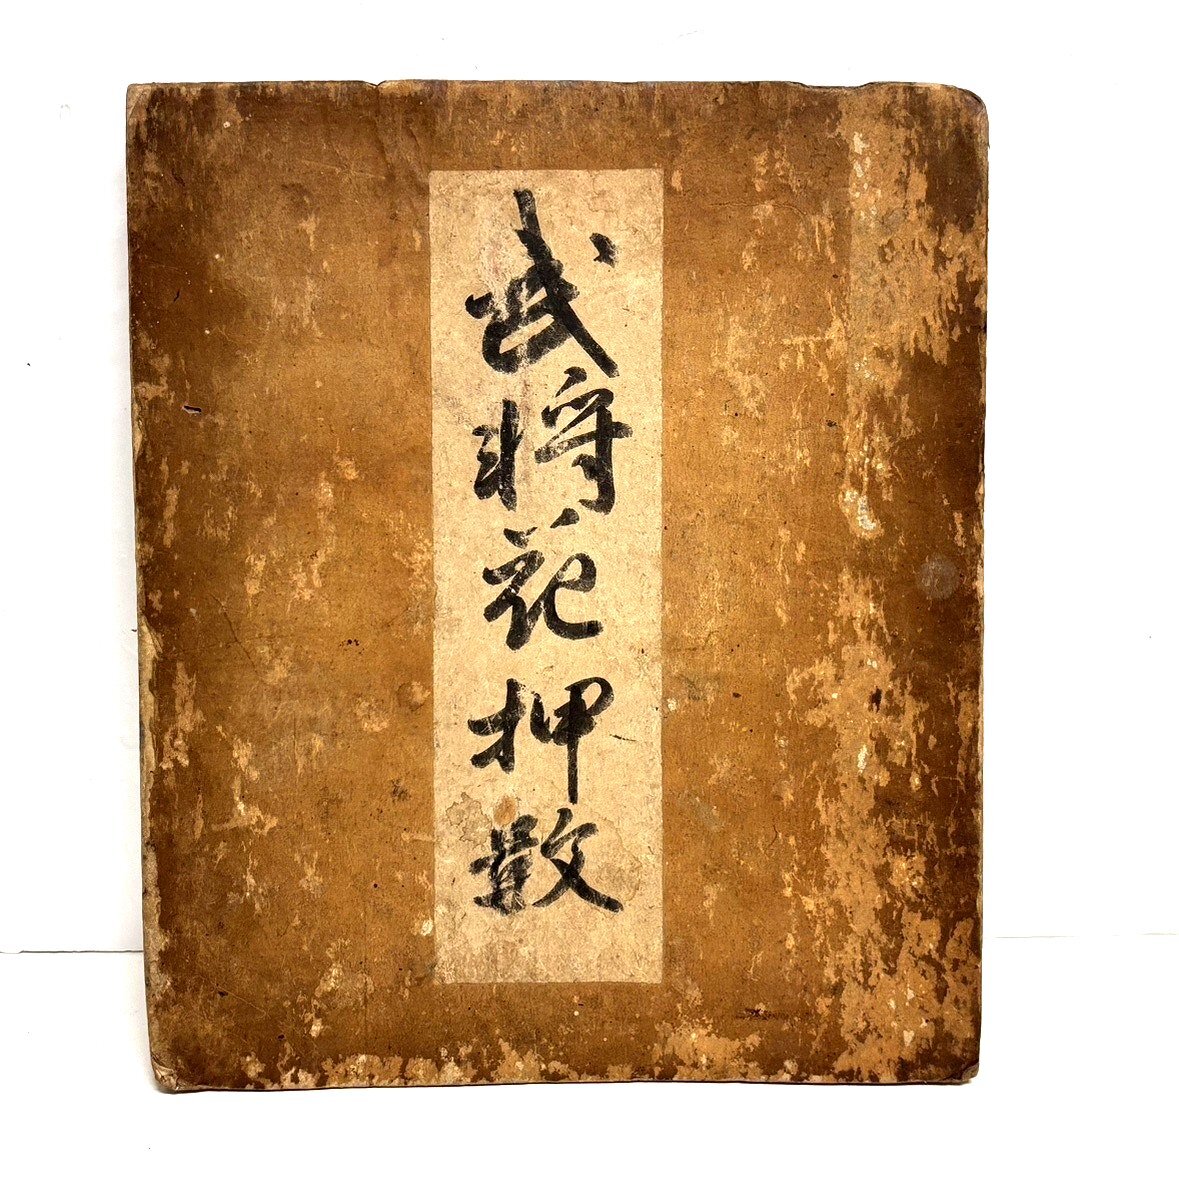 武将花押数